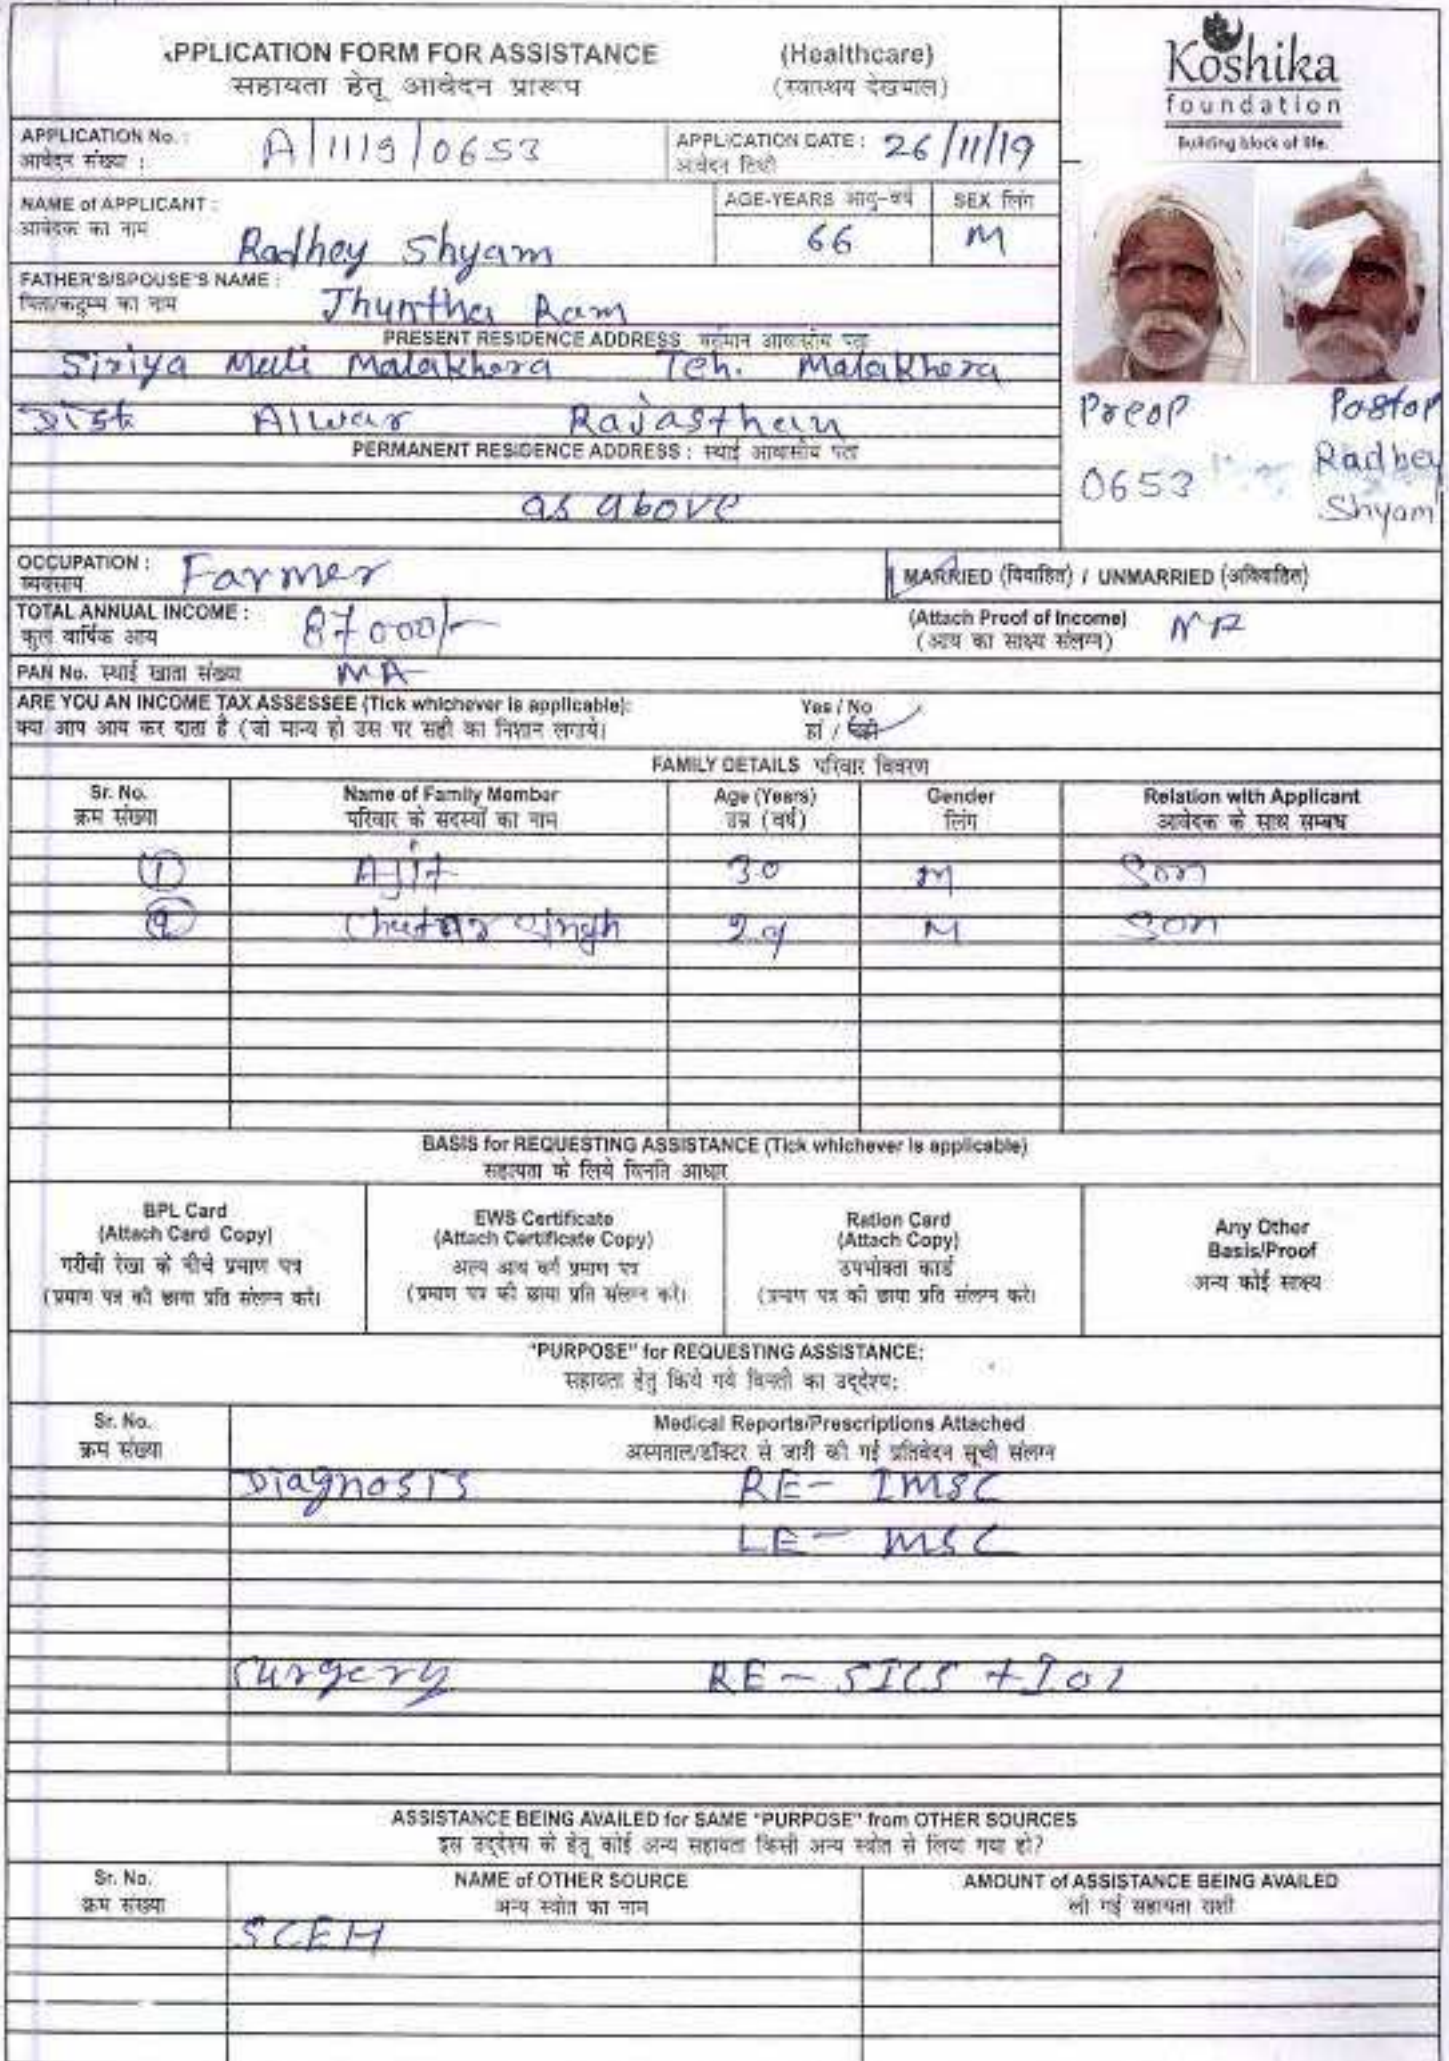 APPLICATION FORM FOR ASSISTANCE (Healthcare)
सहायता हेतू आवेदन प्रारूप (स्वास्थय देखभाल)
Koshika
foundation
Building block of life.
APPLICATION No. : A/1119/0653 APPLICATION DATE : 26/11/19
आवेदन संख्या : आवेदन तिथी
NAME of APPLICANT : AGE-YEARS आयु-वर्ष SEX लिंग
आवेदक का नाम Radhey Shyam 66 M
FATHER'S/SPOUSE'S NAME :
पिता/कटुम्ब का नाम Jhuntha Ram
PRESENT RESIDENCE ADDRESS वर्तमान आवासीय पता
Siriya Mali Malakhera Teh. Malakhera
Dist Alwar Rajasthan
Preop Postop
0653 Radhey
Shyam
PERMANENT RESIDENCE ADDRESS : स्थाई आवासीय पता
as above
OCCUPATION : Farmer MARRIED (विवाहित) / UNMARRIED (अविवाहित)
व्यवसाय
TOTAL ANNUAL INCOME : 87000/- (Attach Proof of Income)
कुल वार्षिक आय (आय का साक्ष्य संलग्न)
PAN No. स्थाई खाता संख्या NA
ARE YOU AN INCOME TAX ASSESSEE (Tick whichever is applicable): Yes / No
क्या आप आय कर दाता है (जो मान्य हो उस पर सही का निशान लगाये। हां / नहीं
FAMILY DETAILS परिवार विवरण
Sr. No. Name of Family Member Age (Years) Gender Relation with Applicant
क्रम संख्या परिवार के सदस्यों का नाम उम्र (वर्ष) लिंग आवेदक के साथ सम्बध
1 Ajit 30 M Son
2 Singh 29 M Son
BASIS for REQUESTING ASSISTANCE (Tick whichever is applicable)
सहायता के लिये विनति आधार
BPL Card
(Attach Card Copy)
गरीबी रेखा के नीचे प्रमाण पत्र
(प्रमाण पत्र की छाया प्रति संलग्न करे।
EWS Certificate
(Attach Certificate Copy)
अल्प आय वर्ग प्रमाण पत्र
(प्रमाण पत्र की छाया प्रति संलग्न करे।
Ration Card
(Attach Copy)
उपभोक्ता कार्ड
(प्रमाण पत्र की छाया प्रति संलग्न करे।
Any Other
Basis/Proof
अन्य कोई साक्ष्य
"PURPOSE" for REQUESTING ASSISTANCE:
सहायता हेतु किये गये विनती का उद्देश्य:
Sr. No. Medical Reports/Prescriptions Attached
क्रम संख्या अस्पताल/डॉक्टर से जारी की गई प्रतिवेदन सूची संलग्न
Diagnosis RE- IMSC
LE- MSC
Surgery RE- SICS + IOL
ASSISTANCE BEING AVAILED for SAME "PURPOSE" from OTHER SOURCES
इस उद्देश्य के हेतू कोई अन्य सहायता किसी अन्य स्त्रोत से लिया गया हो?
Sr. No. NAME of OTHER SOURCE AMOUNT of ASSISTANCE BEING AVAILED
क्रम संख्या अन्य स्त्रोत का नाम ली गई सहायता राशी
SCEH